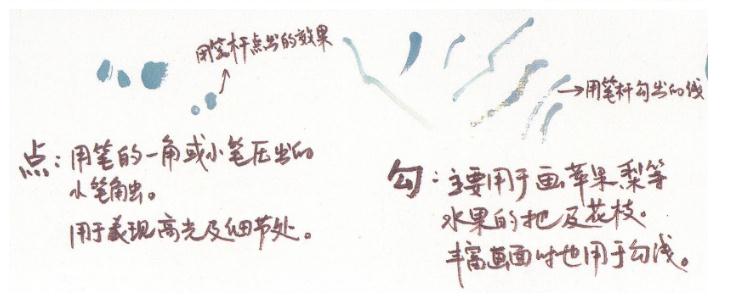 用笔杆点出的效果
→用笔杆勾出的线
点：用笔的一角或小笔压出的
小笔触。
用于表现高光及细节处。
勾：主要用于画苹果、梨等
水果的把及花枝。
丰富画面时也用于勾线。